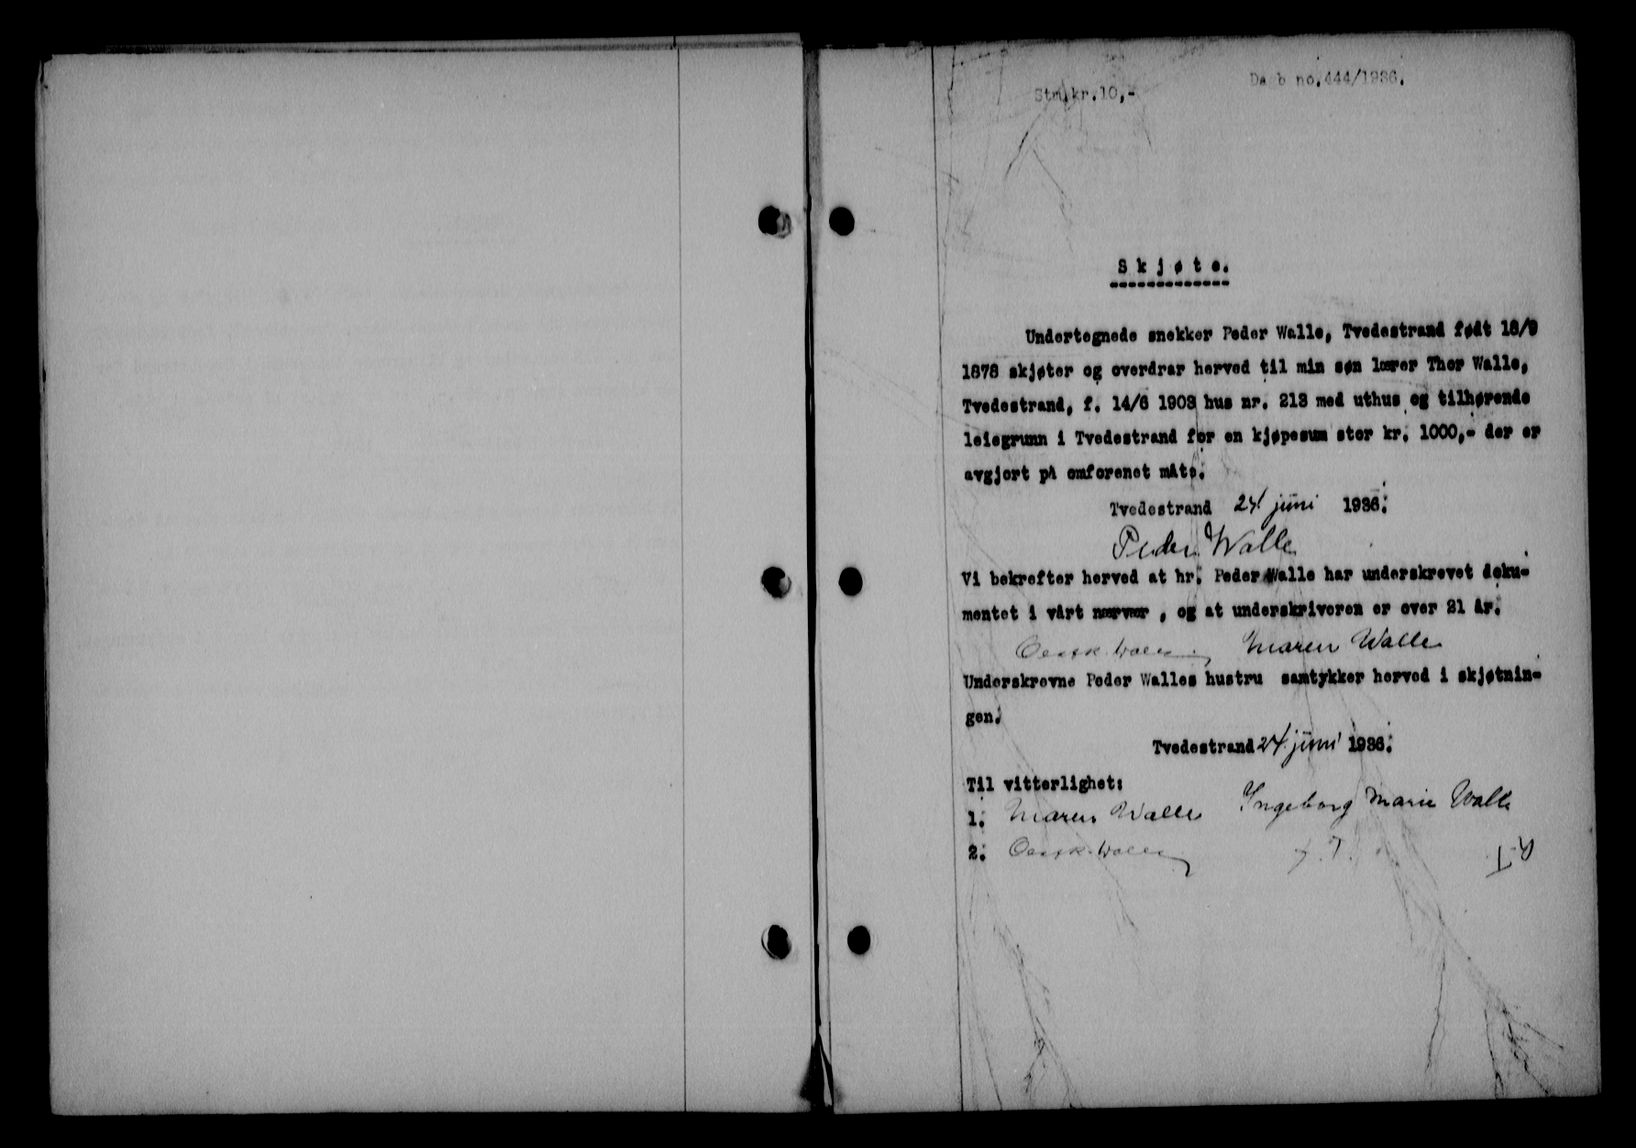 Da b no.444/1936.
Stm.kr.10,-
Skjøte.
Undertegnede snekker Peder Walle, Tvedestrand født 18/9
1878 skjøter og overdrar herved til min søn lærer Thor Walle,
Tvedestrand, f. 14/6 1903 hus nr. 213 med uthus og tilhørende
leiegrunn i Tvedestrand for en kjøpesum stor kr. 1000,- der er
avgjort på omforenet måte.
Tvedestrand 24 juni 1936.
Peder Walle
Vi bekrefter herved at hr. Peder Walle har underskrevet doku-
mentet i vårt nærvær , og at underskriveren er over 21 år.
Walle Maren Walle
Underskrevne Peder Walles hustru samtykker herved i skjøtnin-
gen.
Tvedestrand 24 juni 1936.
Til vitterlighet:
1. Maren Walle Ingeborg Marie Walle
2. Walle